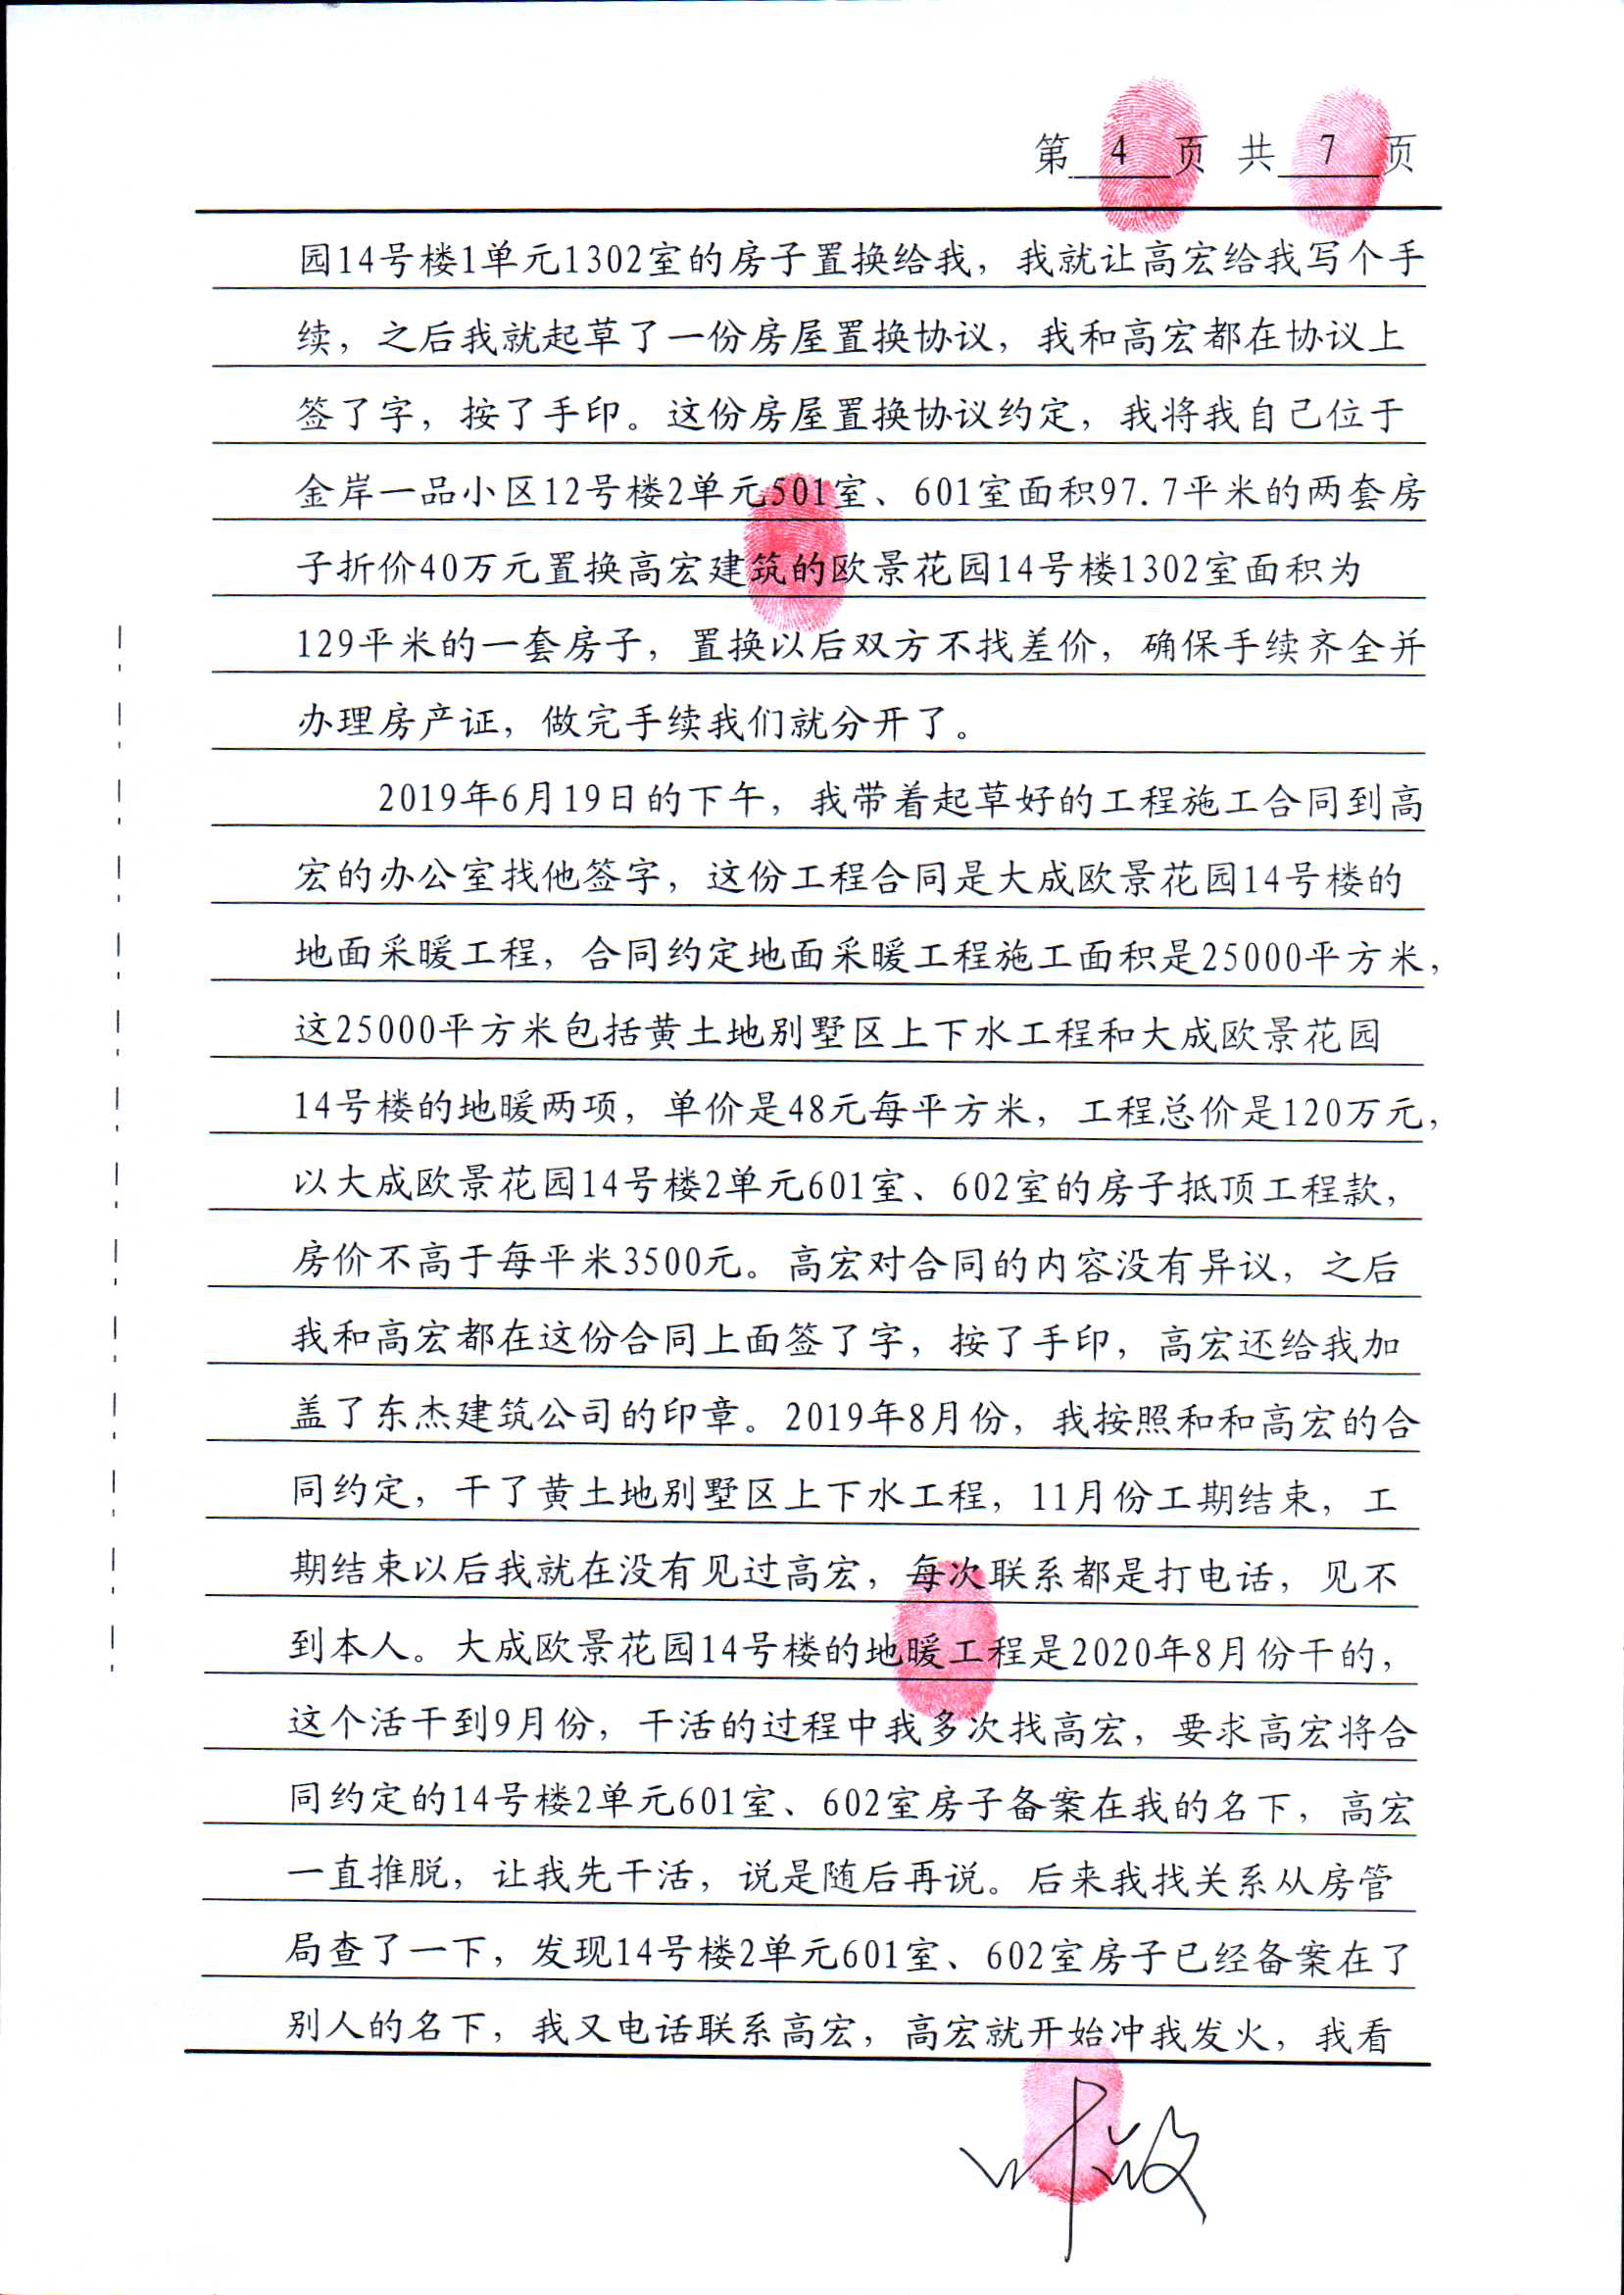 第 4 页 共 7 页
园14号楼1单元1302室的房子置换给我，我就让高宏给我写个手
续，之后我就起草了一份房屋置换协议，我和高宏都在协议上
签了字，按了手印。这份房屋置换协议约定，我将我自己位于
金岸一品小区12号楼2单元501室、601室面积97.7平米的两套房
子折价40万元置换高宏建筑的欧景花园14号楼1302室面积为
129平米的一套房子，置换以后双方不找差价，确保手续齐全并
办理房产证，做完手续我们就分开了。
2019年6月19日的下午，我带着起草好的工程施工合同到高
宏的办公室找他签字，这份工程合同是大成欧景花园14号楼的
地面采暖工程，合同约定地面采暖工程施工面积是25000平方米，
这25000平方米包括黄土地别墅区上下水工程和大成欧景花园
14号楼的地暖两项，单价是48元每平方米，工程总价是120万元，
以大成欧景花园14号楼2单元601室、602室的房子抵顶工程款，
房价不高于每平米3500元。高宏对合同的内容没有异议，之后
我和高宏都在这份合同上面签了字，按了手印，高宏还给我加
盖了东杰建筑公司的印章。2019年8月份，我按照和和高宏的合
同约定，干了黄土地别墅区上下水工程，11月份工期结束，工
期结束以后我就在没有见过高宏，每次联系都是打电话，见不
到本人。大成欧景花园14号楼的地暖工程是2020年8月份干的，
这个活干到9月份，干活的过程中我多次找高宏，要求高宏将合
同约定的14号楼2单元601室、602室房子备案在我的名下，高宏
一直推脱，让我先干活，说是随后再说。后来我找关系从房管
局查了一下，发现14号楼2单元601室、602室房子已经备案在了
别人的名下，我又电话联系高宏，高宏就开始冲我发火，我看